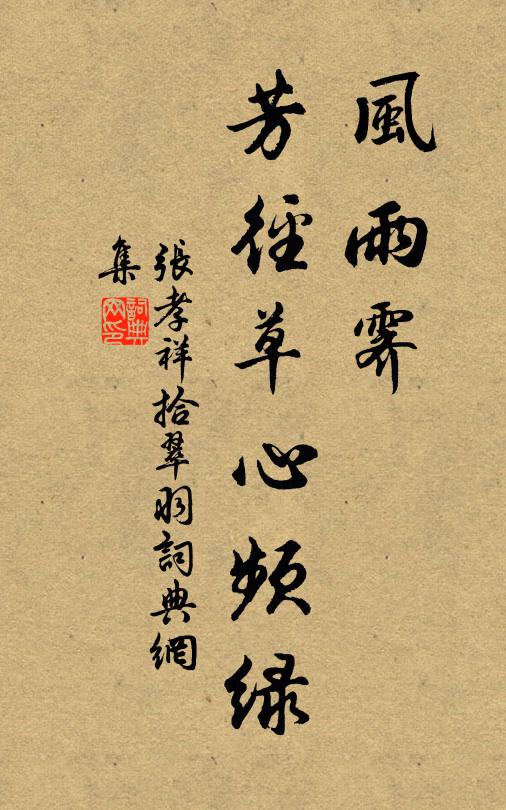 風雨霽
芳徑草心頻綠
張孝祥拾翠羽詞典網
集
詞典
网印